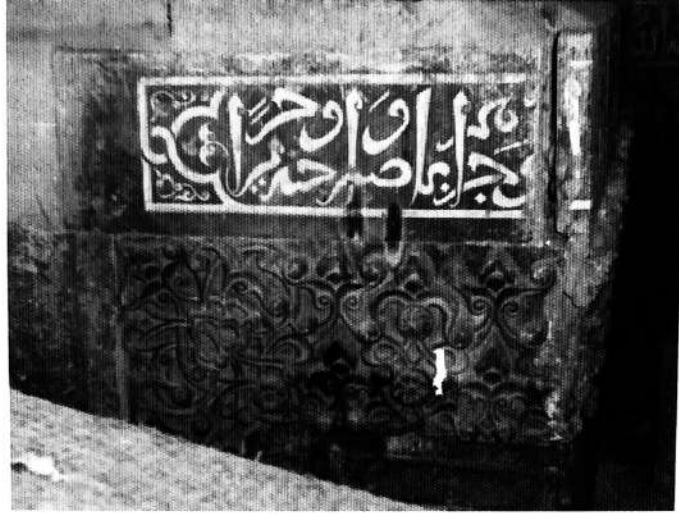 وجزاهم بما صبروا جنة وحريرا